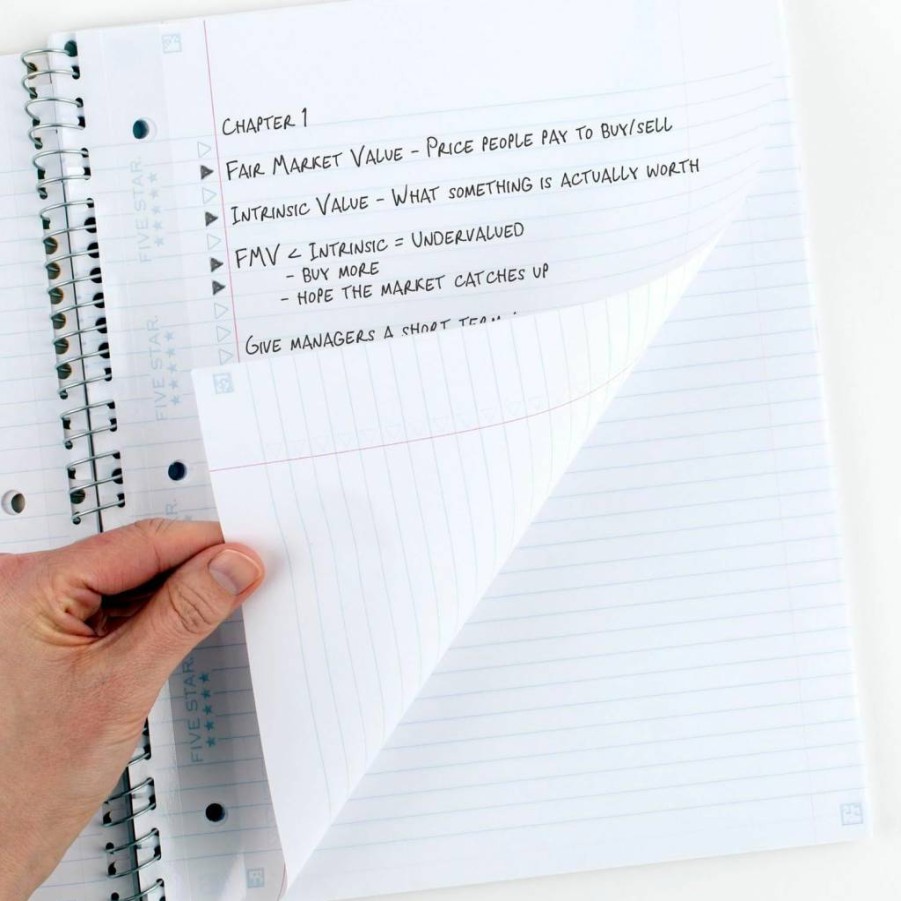 CHAPTER 1
FAIR MARKET VALUE - PRICE PEOPLE PAY TO BUY/SELL
INTRINSIC VALUE - WHAT SOMETHING IS ACTUALLY WORTH
FMV < INTRINSIC = UNDERVALUED
- BUY MORE
- HOPE THE MARKET CATCHES UP
GIVE MANAGERS A SHORT TERM
FIVE STAR
FIVE STAR
FIVE STAR